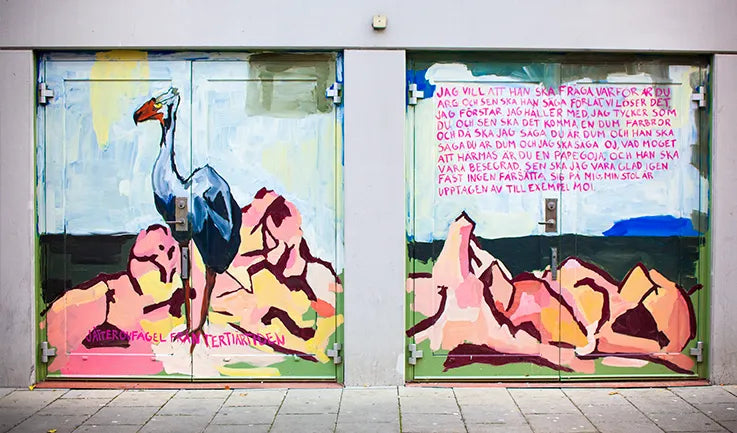 JÄTTEROVFÅGEL FRÅN TERTIÄRTIDEN
JAG VILL ATT HAN SKA FRÅGA VARFÖR ÄR DU
ARG OCH SEN SKA HAN SÄGA FÖRLÅT VI LÖSER DET
JAG FÖRSTÅR JAG HÅLLER MED, JAG TYCKER SOM
DU OCH SEN SKA DET KOMMA EN DUM FARBROR
OCH DÅ SKA JAG SÄGA DU ÄR DUM OCH HAN SKA
SÄGA DU ÄR DUM OCH JAG SKA SÄGA OJ, VAD MOGET
ATT HÄRMAS ÄR DU EN PAPEGOJA, OCH HAN SKA
VARA BESEGRAD, SEN SKA JAG VARA GLAD IGEN
FAST INGEN FÅR SÄTTA SIG PÅ MIG, MIN STOL ÄR
UPPTAGEN AV TILL EXEMPEL MOI.